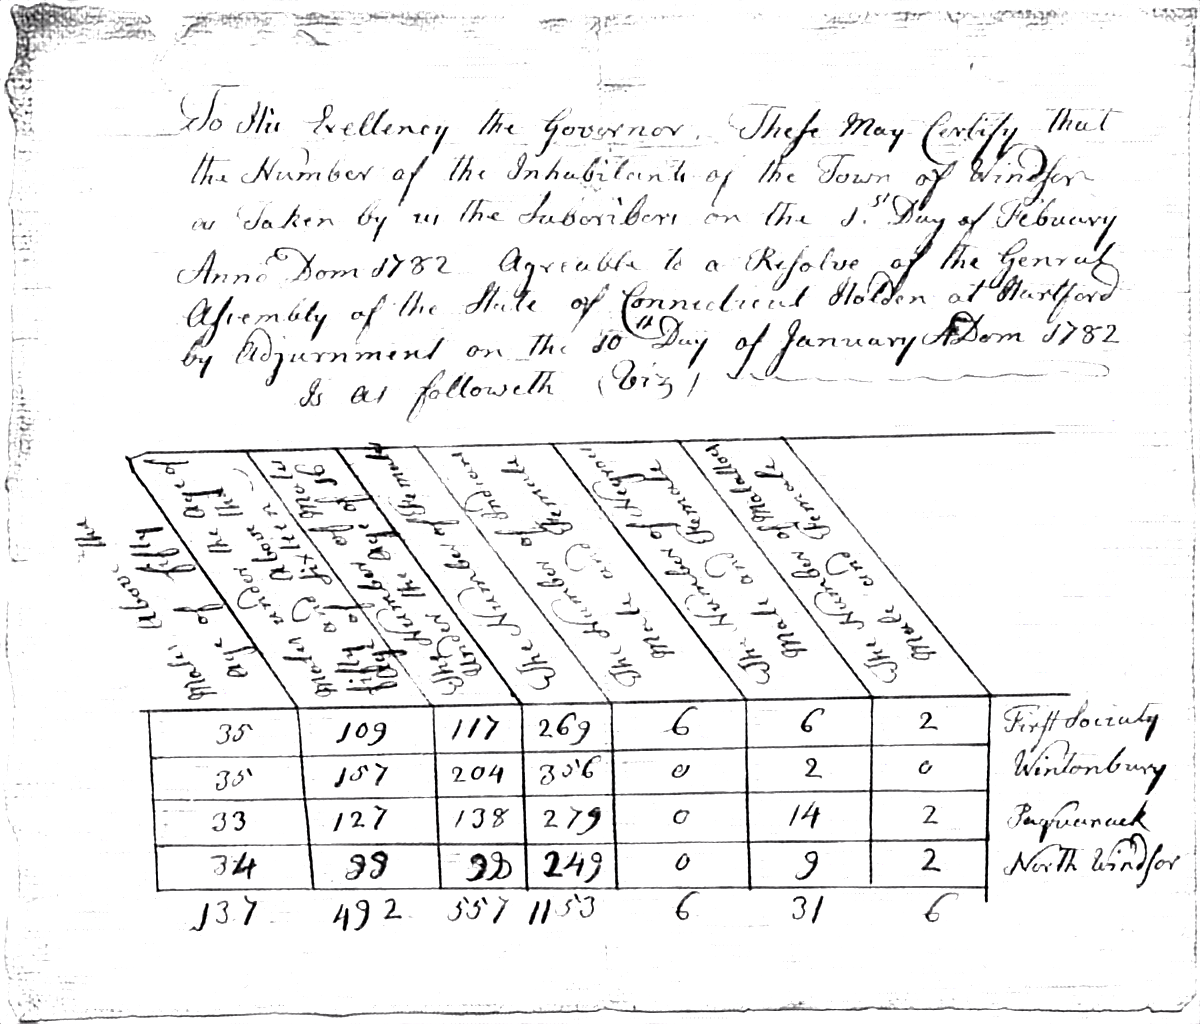 To His Exellency the Governor. These May Certify that
the Number of the Inhabitants of the Town of Windsor
as Taken by us the Subscribers on the 1.st Day of Febuary
Anno Dom 1782 Agreable to a Resolve of the Genral
Assembly of the State of Connecticut Holden at Hartford
by Adjurnment on the 10th Day of January A Dom 1782
Is as followeth (Viz)
Males Above the
Age of fifty
Males under the Age of
fifty and Above the
Age of Sixteen
The Number of Males
Under the Age of 16
The Number of Female
The Number of Indians
Male and Female
The Number of Negroes
Male and Female
The Number of Malattoes
Male and Female
35 109 117 269 6 6 2 First Society
35 157 204 356 0 2 0 Wintonbury
33 127 138 279 0 14 2 Poquanack
34 99 98 249 0 9 2 North Windsor
137 492 557 1153 6 31 6